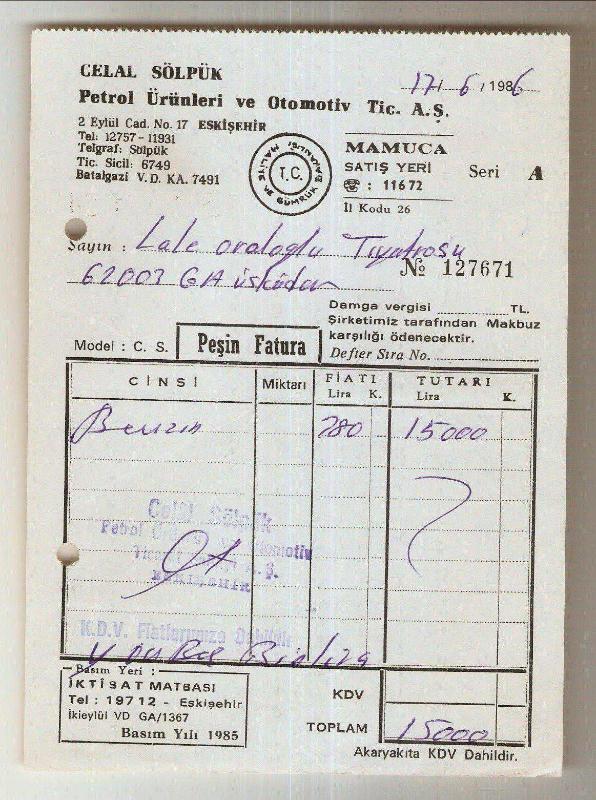 CELAL SÖLPÜK
Petrol Ürünleri ve Otomotiv Tic. A.Ş.
17/ 6 /1986
2 Eylül Cad. No. 17 ESKİŞEHİR
Tel: 12757-11931
Telgraf: Sölpük
Tic. Sicil: 6749
Batalgazi V.D. KA. 7491
T.C.
MALİYE VE GÜMRÜK BAKANLIĞI
MAMUCA
SATIŞ YERİ
☎ : 11672
İl Kodu 26
Seri A
Sayın : Lale oraloglu Tiyatrosu
62003 GA üsküdar
№ 127671
Damga vergisi TL.
Şirketimiz tarafından Makbuz
karşılığı ödenecektir.
Defter Sıra No.
Model : C. S.
Peşin Fatura
CİNSİ Miktarı FİATI TUTARI
Lira K. Lira K.
Benzin 280 15000
Celal Sölpük
Petrol Ürünleri ve Otomotiv
Ticaret A.Ş.
ESKİŞEHİR
K.D.V. Fiatlarımıza Dahildir
Basım Yeri :
İKTİSAT MATBASI
Tel : 19712 - Eskişehir
İkieylül VD GA/1367
Basım Yılı 1985
KDV
TOPLAM 15000
Akaryakıta KDV Dahildir.